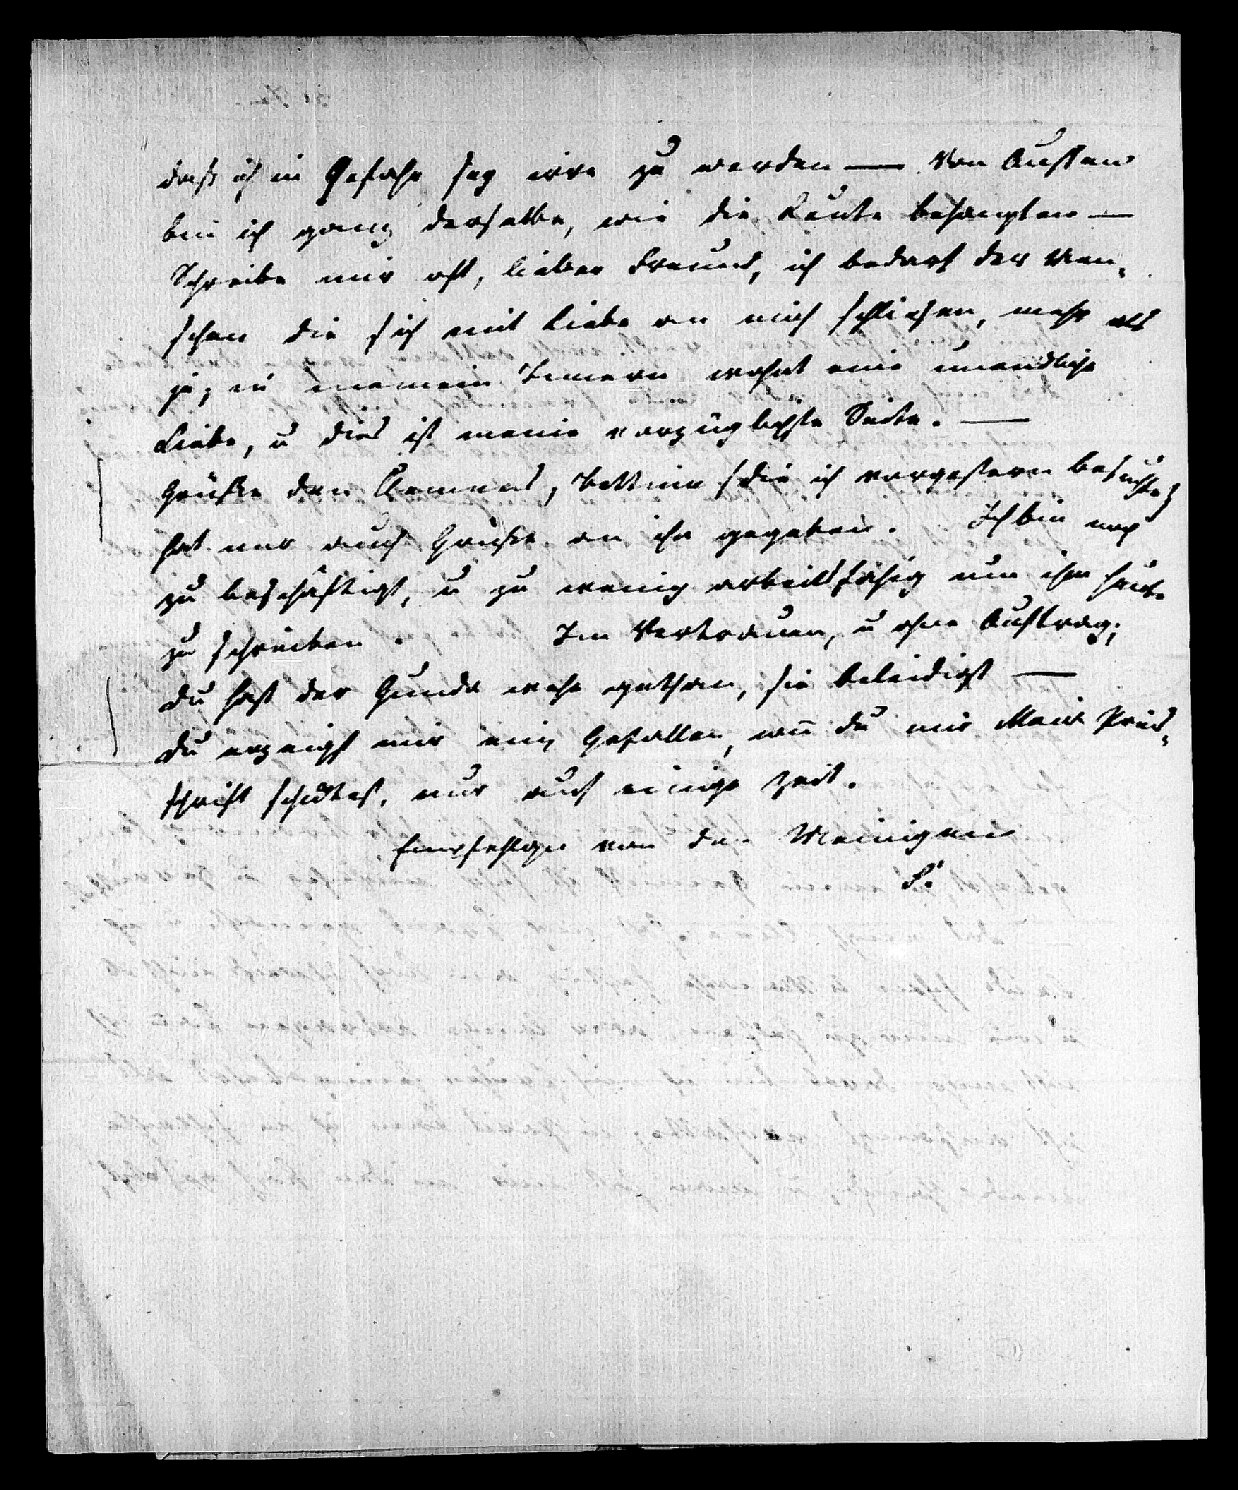 daß ich in Gefahr sey irre zu werden — Von Außen
bin ich ganz derselbe, wie die Leute behaupten —
Schreibe mir oft, lieber Freund, ich bedarf der Men„
schen die sich mit Liebe an mich schließen, mehr als
je, in meinem Innern wohnt eine unendliche
Liebe, u dies ist meine vorzüglichste Seite. —
Grüße den Clemens, Bettine (die ich vorgestern besuchte)
hat mir auch Grüße an ihn gegeben. Ich bin noch
zu beschäftigt, u zu wenig arbeitsfähig um ihm heute
zu schreiben. Im Vertrauen, u ohne Auftrag;
du hast der Gunda wehe gethan, sie beleidigt —
du erzeigst mir ein Gefallen, wen̄ du mir Preis„
schrift schicktest, nur auf einige Zeit.
Empfehlgn von den Meinigen
S.